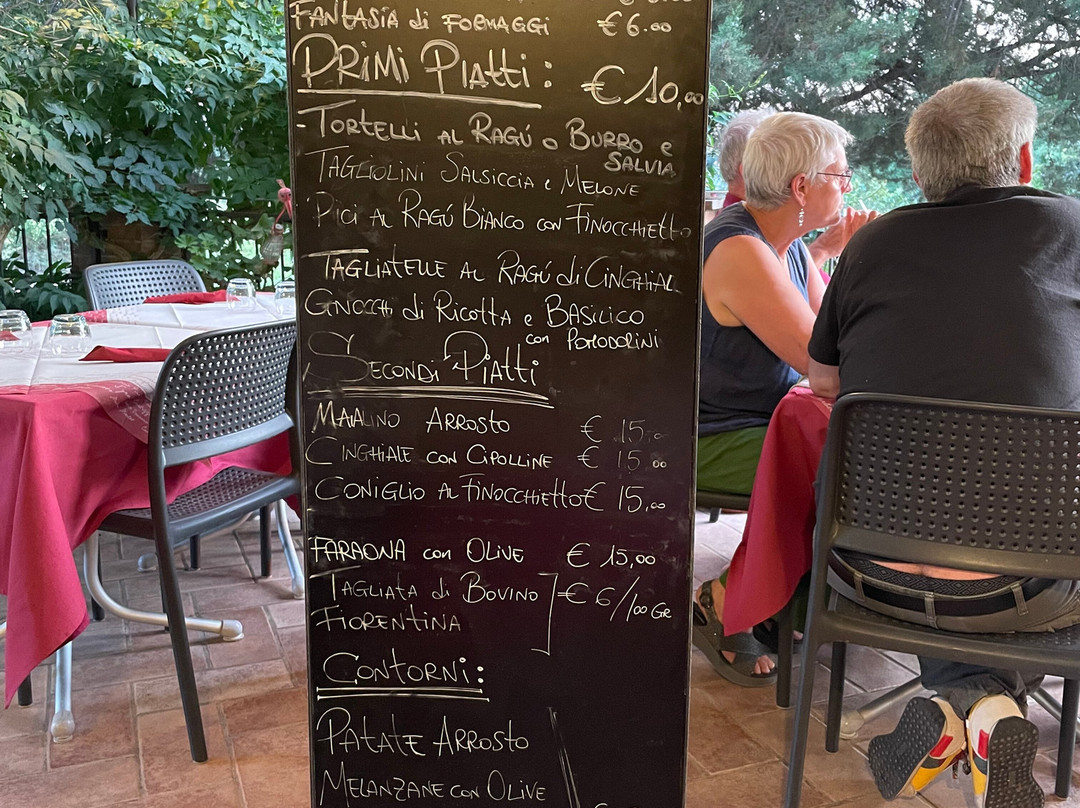 FANTASIA di FORMAGGI € 6.00
PRIMI PIATTI: € 10,00
- TORTELLI AL RAGÚ O BURRO e
SALVIA
TAGLIOLINI SALSICCIA e MELONE
PICI AL RAGÚ BIANCO CON FINOCCHIETTO
TAGLIATELLE AL RAGÚ di CINGHIAL
GNOCCHI di RICOTTA e BASILICO
con POMODORINI
SECONDI PIATTI
MAIALINO ARROSTO € 15,00
CINGHIALE CON CIPOLLINE € 15,00
CONIGLIO AL FINOCCHIETTO € 15,00
FARAONA con OLIVE € 15,00
TAGLIATA di BOVINO € 6/100 GR
FIORENTINA
CONTORNI:
PATATE ARROSTO
MELANZANE CON OLIVE